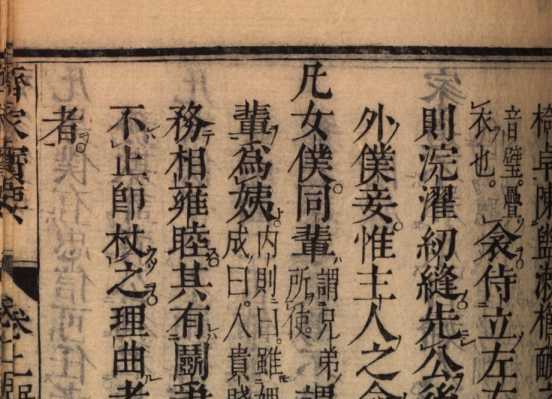 椅卓陳盥漱櫛
音璧。疊
衣也。
衾侍立左右
則浣濯紉縫。先公後
外僕妾。惟主人之命
凡女僕同輩。
謂兄弟
所使。
謂
輩為姨。
內則曰。雖婢
成曰。人貴賤
務相雍睦。其有鬬爭
不止即杖之。理曲者
者。
齊家寶要
卷上